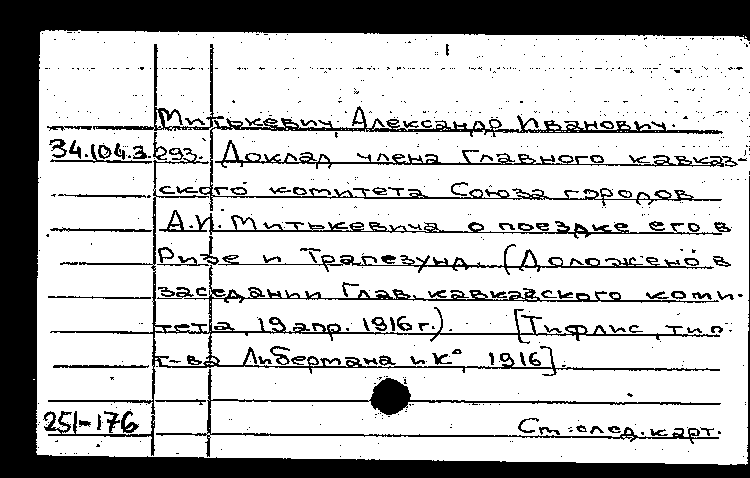 Митькевич, Александр Иванович.
34.104.3.293. Доклад члена Главного кавказ-
ского комитета Союза городов
А.И. Митькевича о поездке его в
Ризе и Трапезунд. (Доложено в
заседании Глав. кавказского коми-
тета, 19 апр. 1916 г.). [Тифлис, тип.
т-ва Либерман и К°, 1916].
251-176
См. след. карт.